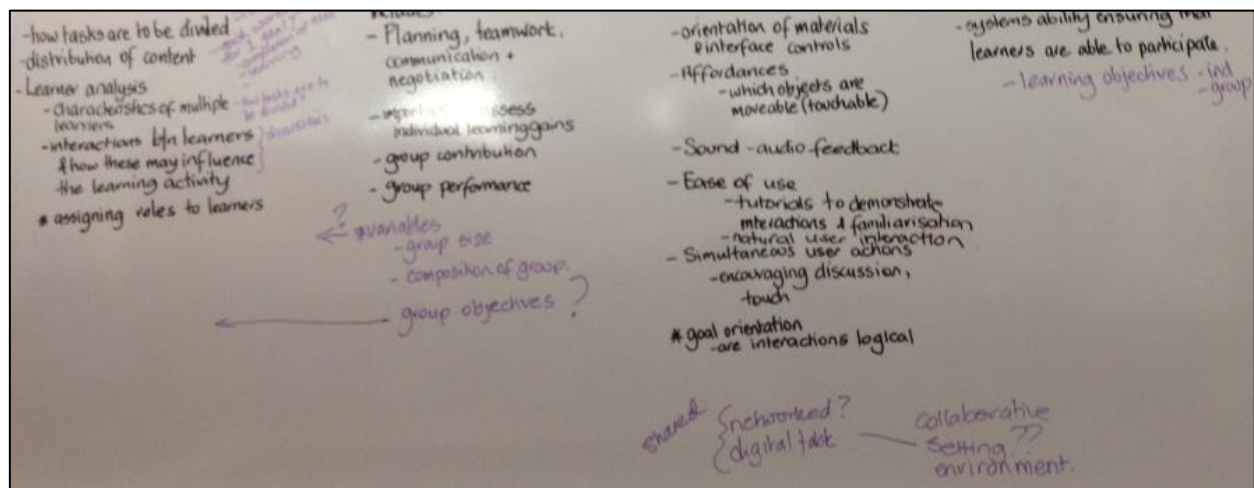 -how tasks are to be divided
-distribution of content
-Learner analysis
-characteristics of multiple
learners
-interactions b/n learners
& how these may influence
the learning activity
* assigning roles to learners
for 1 goal?
-learning
-how tasks are to
be divided?
- Planning, teamwork,
communication +
negotiation.
assess
individual learning gains
- group contribution
- group performance
? *variables
- group size
- composition of group.
group objectives ?
-orientation of materials
& interface controls
-Affordances
-which objects are
moveable (touchable)
-Sound -audio feedback
- Ease of use
-tutorials to demonstrate
interactions & familiarisation
-natural user interaction
- Simultaneous user actions
-encouraging discussion,
touch
* goal orientation
-are interactions logical
shared {networked?
digital table
collaborative
setting??
environment.
-systems ability ensuring that
learners are able to participate.
-learning objectives -ind
-group